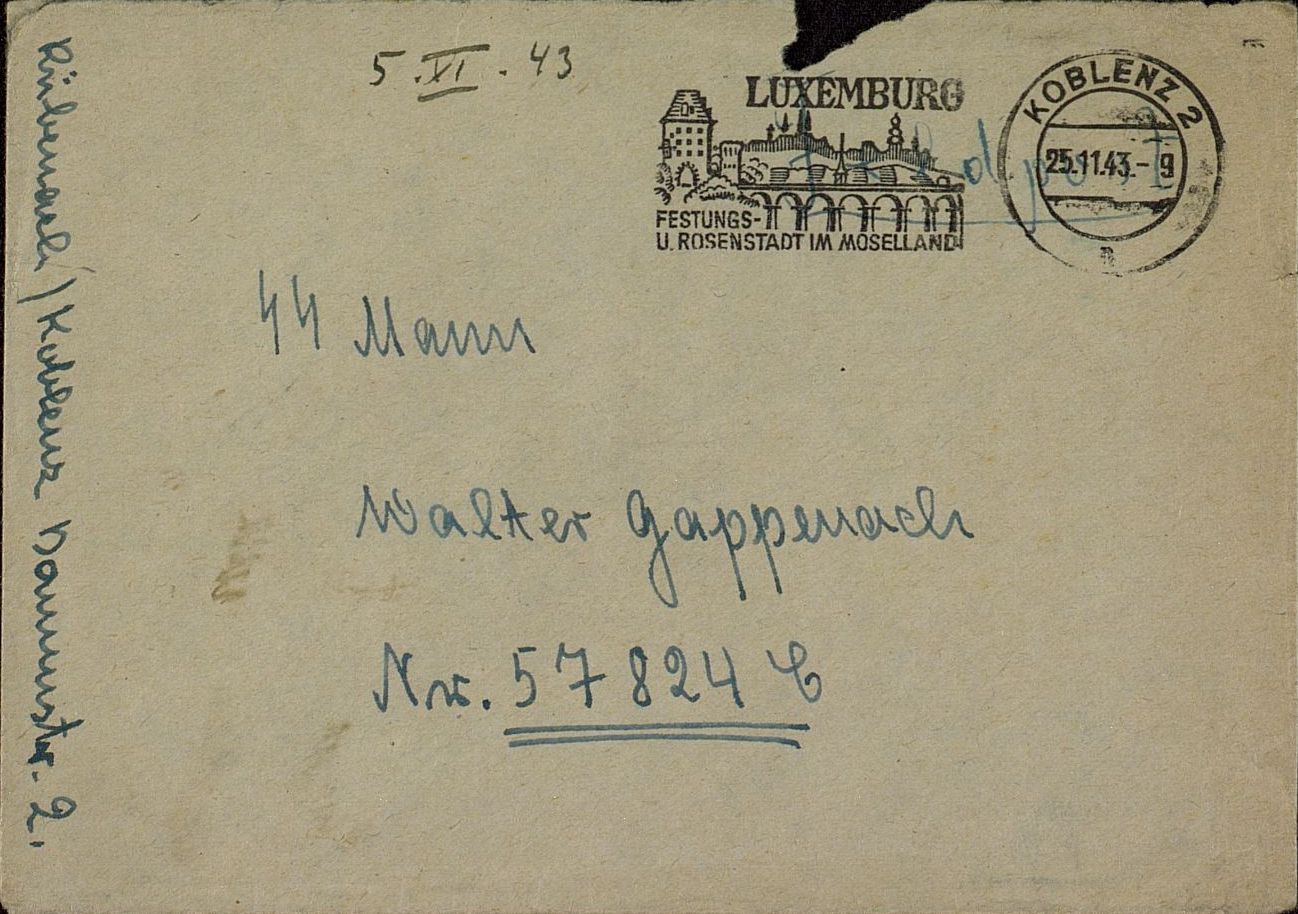 5.XI.43
LUXEMBURG
FESTUNGS-
U. ROSENSTADT IM MOSELLAND
KOBLENZ 2
25.11.43.- 9
a
Feldpost
SS Mann
Walter Gappenach
Nr. 57824 C
Rübenach / Koblenz Baumstr. 2.